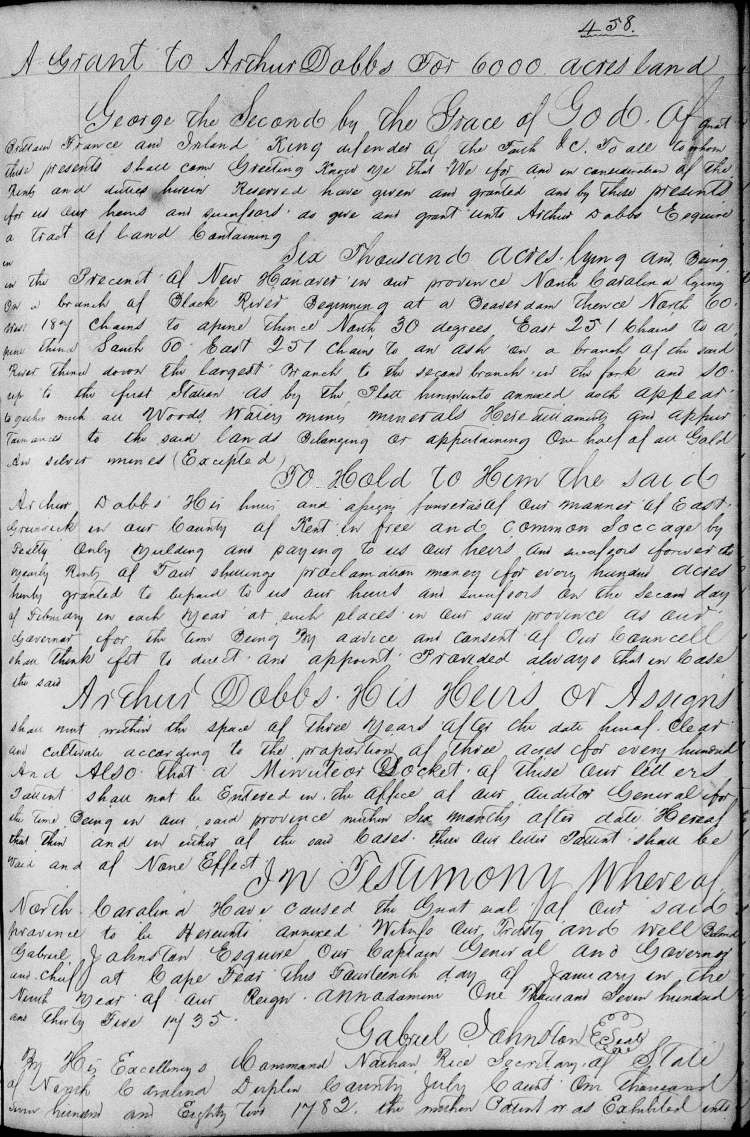 458.
A Grant to Arthur Dobbs For 6000 acres land
George the Second by the Grace of God. Of great
Brittain France and Ireland King defender of the Faith &C. To all to whom
these presents shall come Greeting Know ye that We for and in consideration of the
Rents and duties herein Reserved have given and granted and by these presents
for us our heirs and successors do give and grant unto Arthur Dobbs Esquire
a tract of land Containing
Six Thousand acres. lying and Being
in
in the Precinct of New Hanover in our province North Carolina lying
On a branch of Black River Beginning at a Beaverdam thence North 60
West chains to a pine thence North 30 degrees East 251 Chains to a
pine thence South 60 East 251 chains to an ash on a branch of the said
River thence down the largest Branch to the second branch in the fork and so
up to the first Station as by the Platt hereunto annexed doth appear
together with all Woods Waters mines minerals Hereditaments and appur
tainances to the said lands Belonging or appertaining One half of all Gold
An silver mines (Excepted)
To Hold to Him the said
Arthur Dobbs His heirs and assigns of our manner of East
Greenwick in our County of Kent in free and common Soccage by
Fealty Only yielding and paying to us our heirs and successors forever the
yearly Rents of Four shillings proclamation money for every hundred acres
hereby granted to be paid to us our heirs and successors on the second day
of February in each year at such places in our said province as our
Governor for the time Being By advice and consent of Our Councell
shall think fit to direct and appoint. Provided always that in Case
the said
Arthur Dobbs. His Heirs or Assigns
shall not within the space of three years after the date hereof. Clear
and cultivate according to the proportion of three acres for every hundred
And Also. That a Minute or Docket. of these Our letters
Patent shall not be Entered in the Office of our auditor General for
the time Being in our said province within Six months after date Hereof
that then and in either of the said Cases. these Our letters Patent shall be
Void and of None Effect
In Testimony Whereof
North Carolina Have caused the Great seal of Our said
province to be Hereunto annexed Witness Our Trusty and well Beloved
Gabriel Johnston Esquire Our Captain General and Governor
and Chief at Cape Fear this Fourteenth day of January in the
Ninth Year of our Reign. annodomini One Thousand Seven hundred
and thirty Five 1735.
Gabriel Johnston Seal
By His Excellencys Command Nathan Rice Secretary of State
of North Carolina Duplin County July Court One thousand
seven hundred and Eighty two 1782. the within Patent was Exhibited into